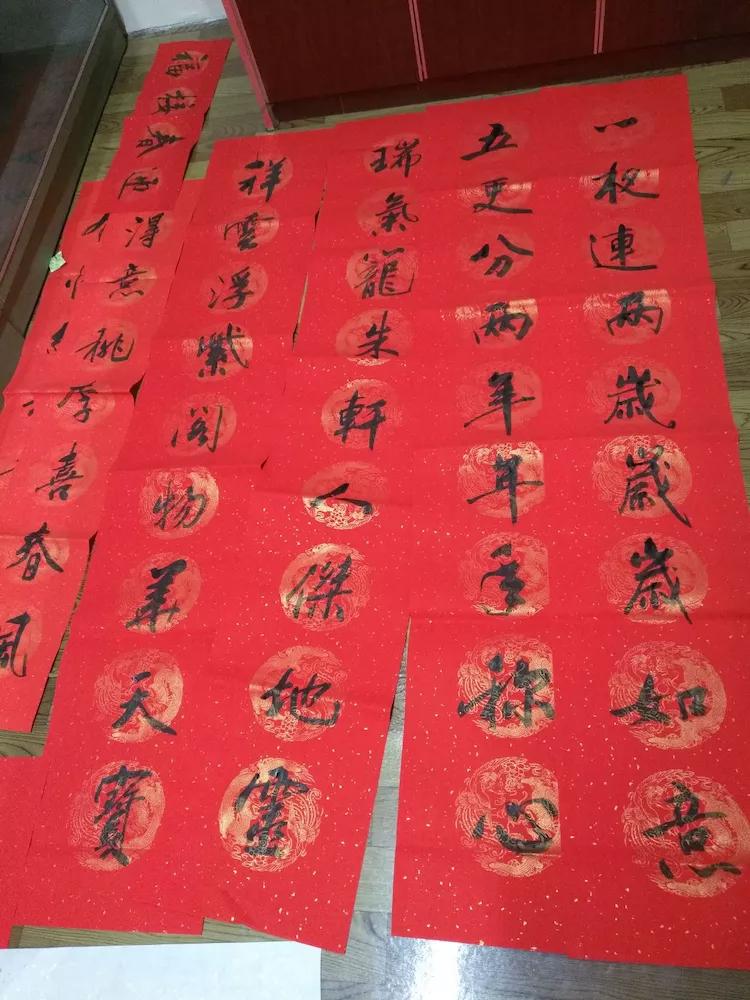 一夜連兩歲歲歲如意
五更分兩年年年稱心
瑞氣籠朱軒人傑地靈
祥雲浮紫閣物華天寶
迎春接福
得意桃李喜春風